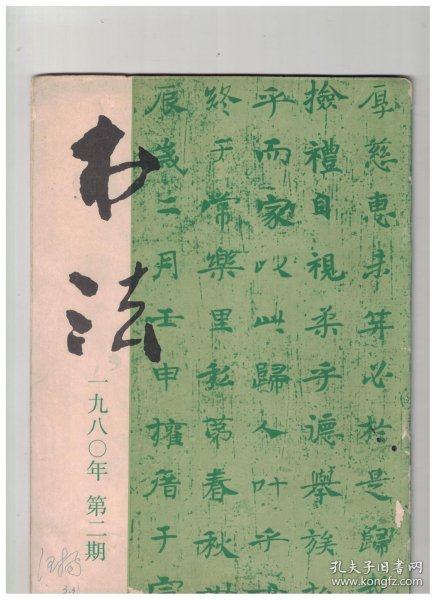 书法
一九八〇年 第二期
厚慈惠未算必於是歸
撿禮自視柔乎舉族
乎而家以此歸人叶乎
終于常樂里私第春秋
辰歲二月壬申于
孔夫子旧书网
www.kongfz.com